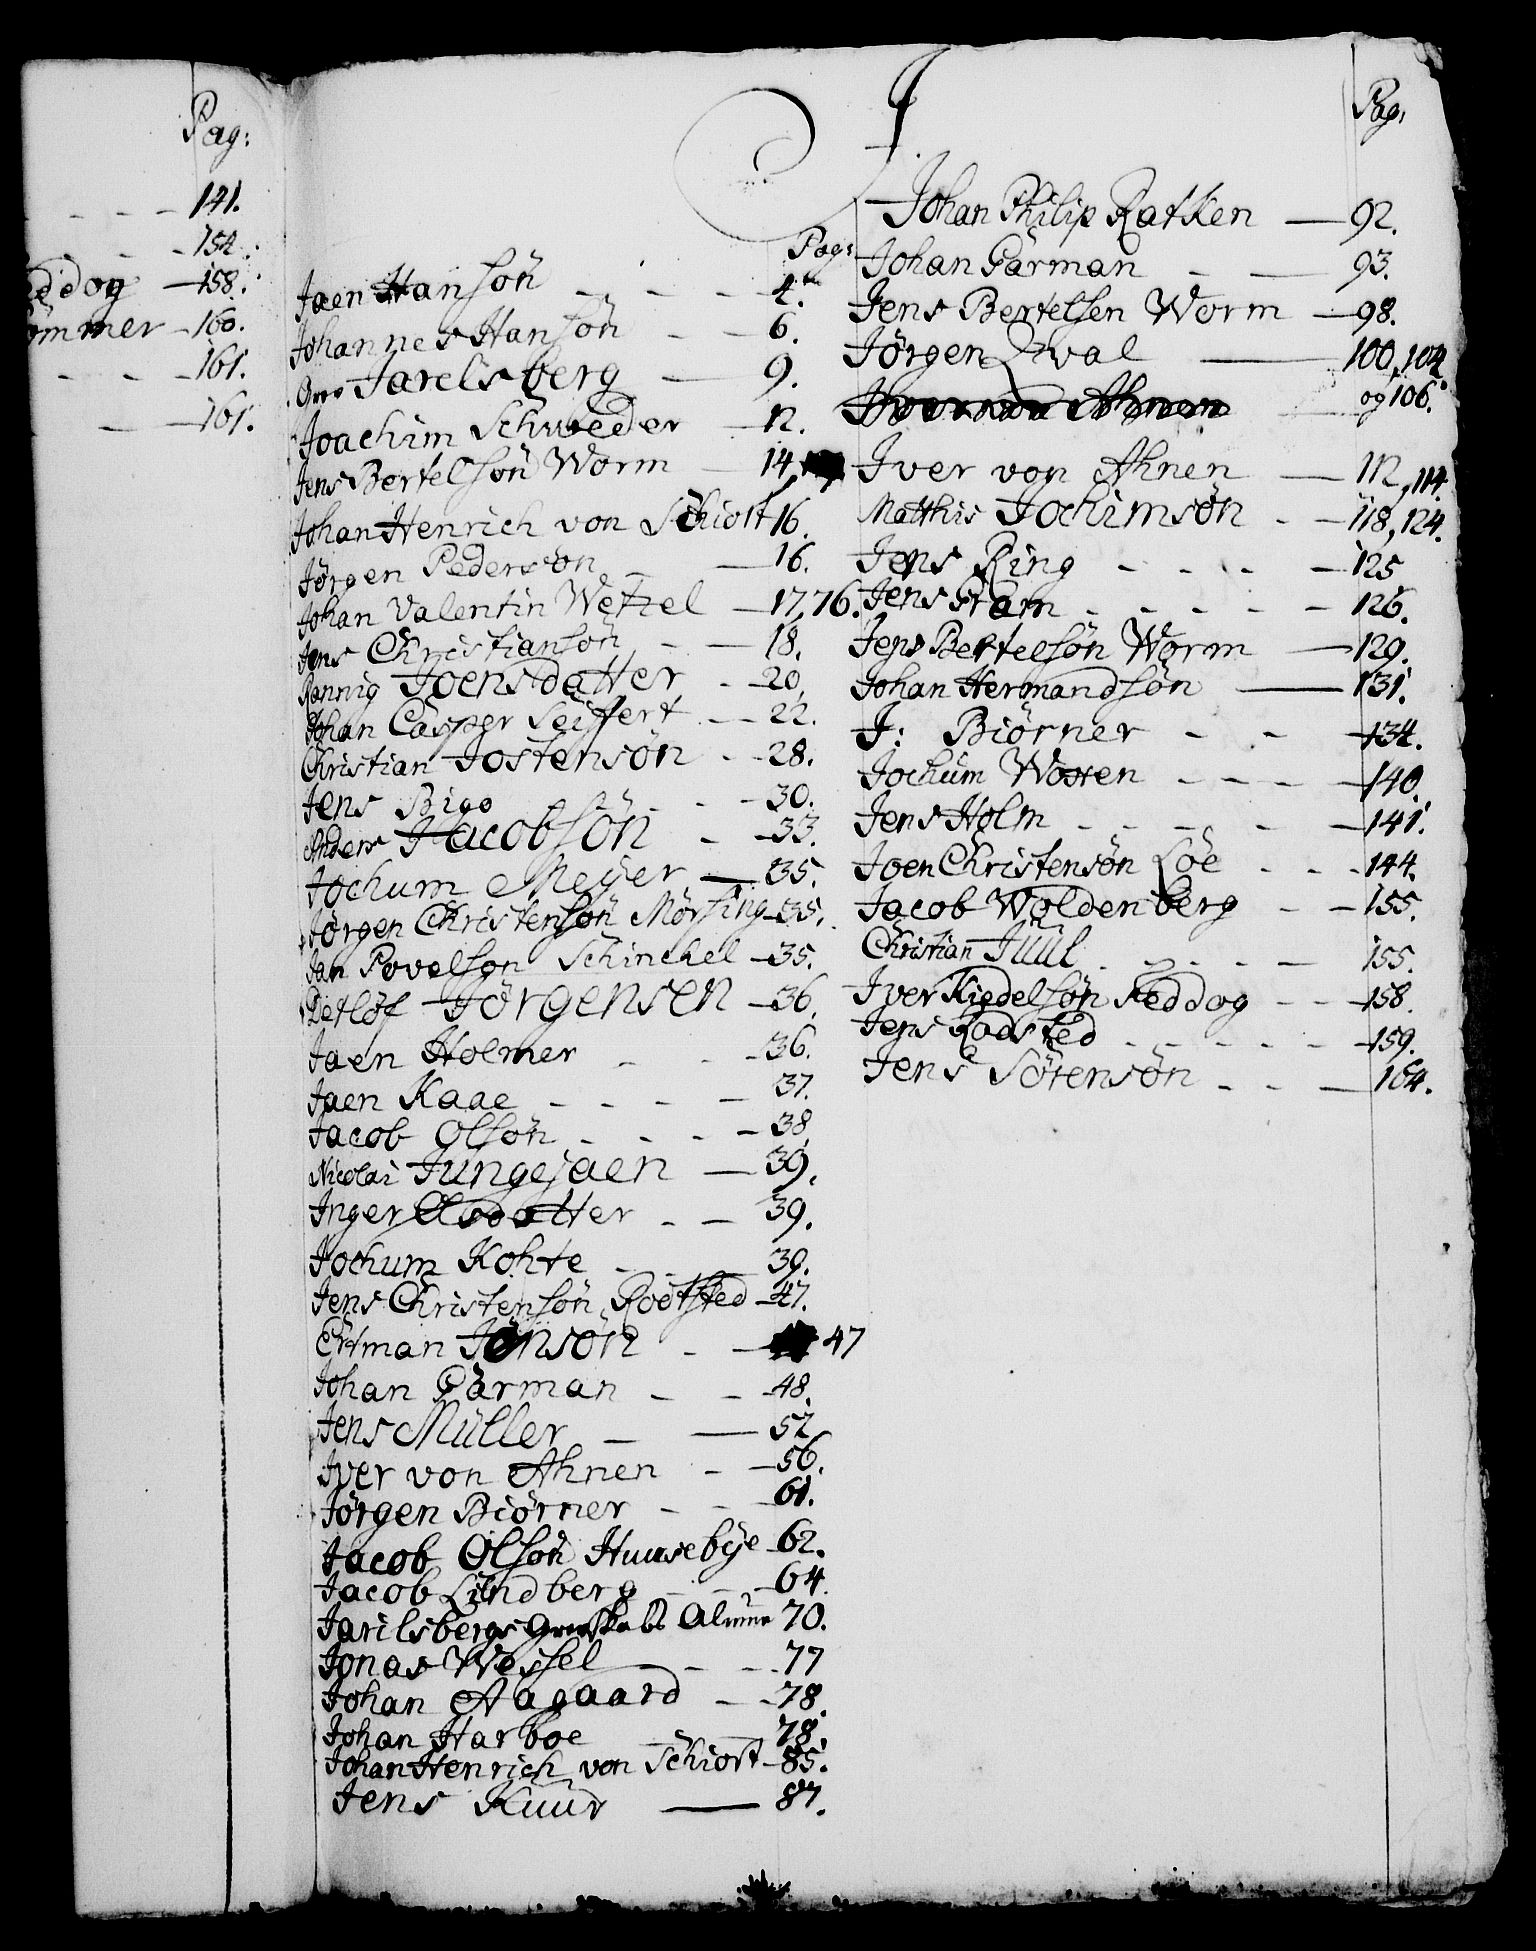 Pag:
141.
152.
ddog 158.
ömmer 160.
161.
161.
J.
Pag:
Jaen Hansön 4.
Johannes Hansön 6.
Jarelsberg 9.
Joachim Schweder 12.
Jens Bertelsön Worm 14,
Johan Henrich von Schiort 16.
Jörgen Pedersön 16.
Johan Valentin Wetzel 17,76.
Jens Christiansön 18.
Rannig Joensdatter 20,
Johan Casper Seiffert 22.
Christian Jostensön 28.
Jens Bigo 30.
Anders Jacobsön 33.
Jochum Meÿer 35.
Jörgen Christensön Mörsing 35.
Jan Povelson Schinckel 35.
Detlöf Jörgensen 36.
Jaen Holmer 36.
Jaen Kaae 37.
Jacob Olsön 38
Nicolai Jungejaen 39.
Inger Elsdatter 39.
Jochum Kohte 39.
Jens Christensön Rodtsted 47.
Ertman Jönsön 47
Johan Garman 48.
Jens Müller 52
Iver von Ahnen 56.
Jörgen Biörner 61.
Jacob Olsön Huusebÿe 62.
Jacob Lindberg 64.
Jarilsbergs Grevskabs Almue 70.
Jonas Wessel 77
Johan Aagaard 78.
Johan Harboe 78.
Johan Henrich von Schiort 85.
Jens Kuur 87.
Pag:
Johan Philip Ratken 92.
Johan Garman 93.
Jens Bertelsen Worm 98.
Jörgen Qval 100, 104
og 106.
Iver von Ahnen 112, 114.
Matthis Jochimsön 118, 124.
Jens Ring 125
Jens Gram 126.
Jens Bertelsön Worm 129.
Johan Hermandsön 131.
J: Biörner 134.
Jochum Wosten 140.
Jens Holm 141.
Joen Christensön Löe 144.
Jacob Woldenberg 155.
Christian Juul 155.
Iver Kiedelsön Feddog 158.
Jens Rodsted 159.
Jens Sörensön 164.